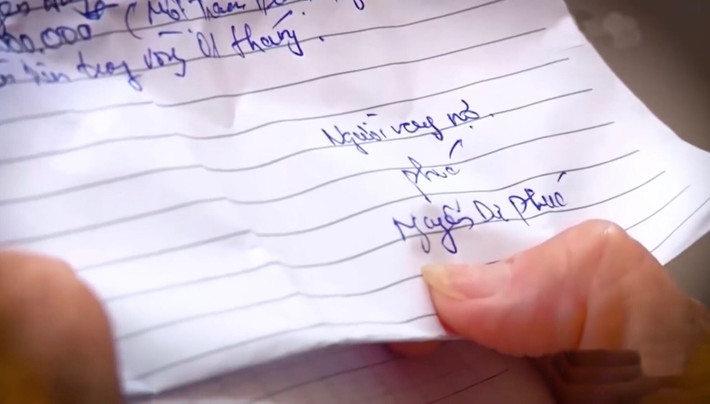 00.000 (Một trăm
tiền trong vòng 01 tháng.
Người vay nợ.
Phúc
Nguyễn Dư Phúc